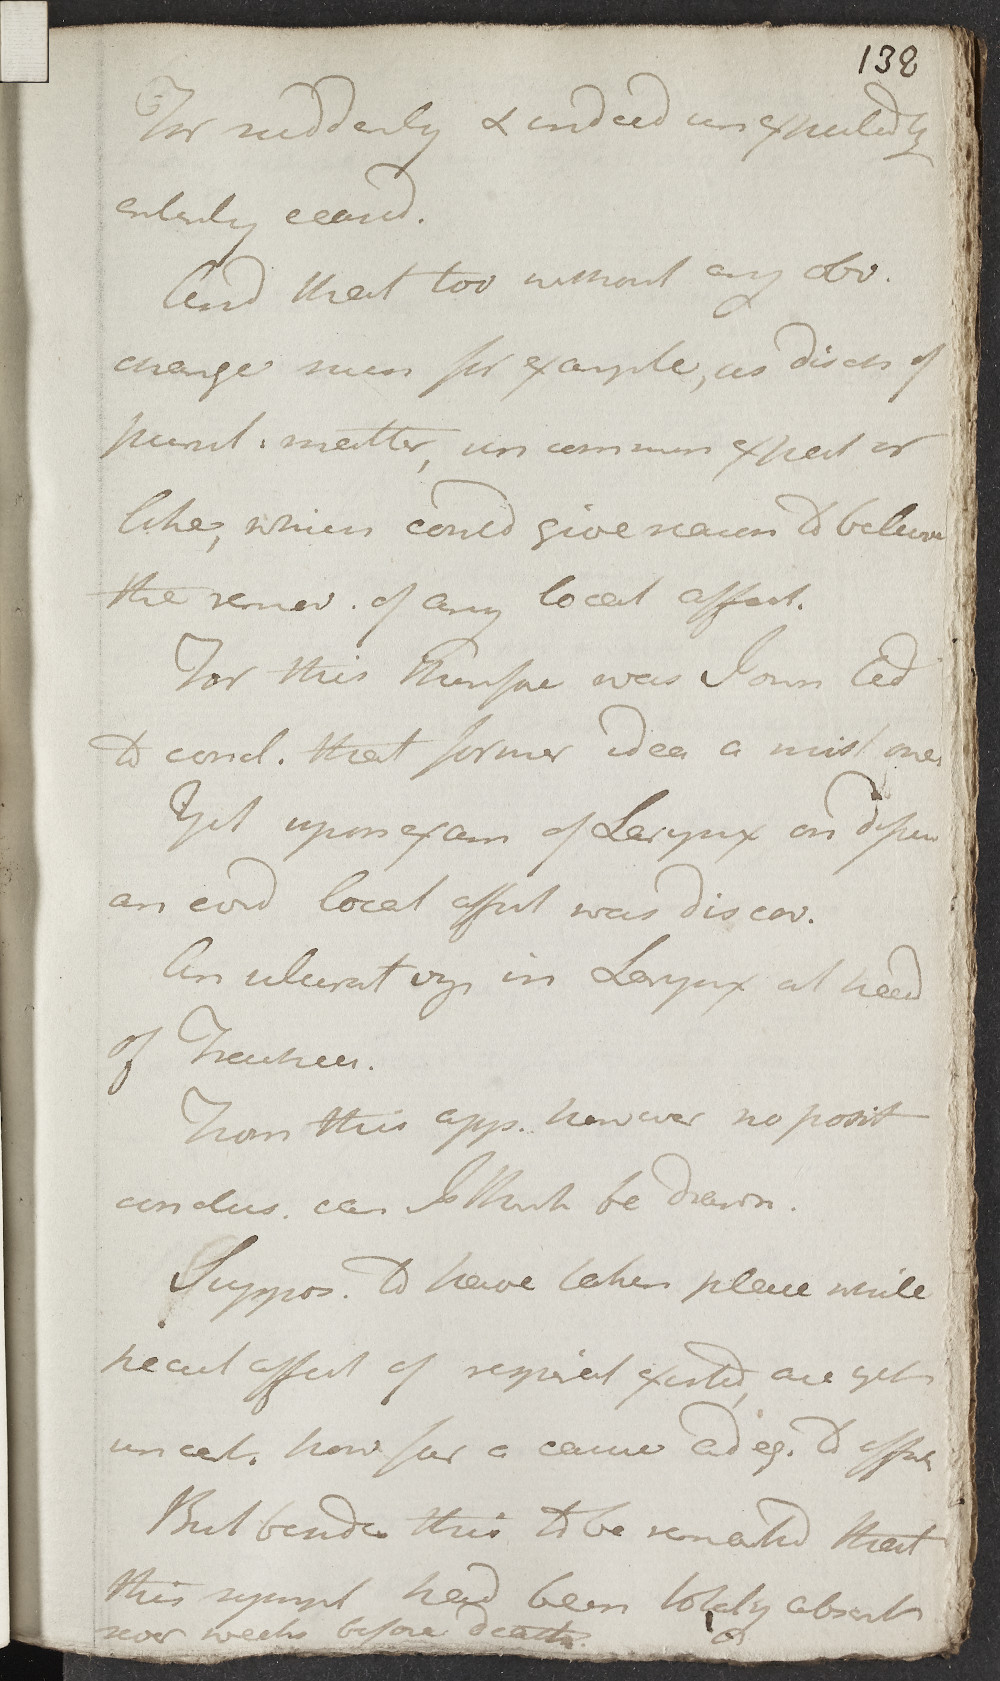 138
For suddenly & indeed unexpectedly
entirely ceased.
And that too without any obv.
change such for example, as disch of
purul. matter, uncommon expect or
like, which could give reason to believe
the remov. of any local affect.
For this therefore was I own led
to concl. that former idea a mist one
Yet upon exam of Larynx on dissec
an evid local affect was discov.
An ulcerat in Larynx at head
of Trachea.
From this app. however no posit
conclus. can I think be drawn.
Suppos. to have taken place while
affect of respirat existed, are yet
uncert. how far a cause adeq. to effect
But besides this to be remarked that
this sympt had been totaly absent
weeks before death.